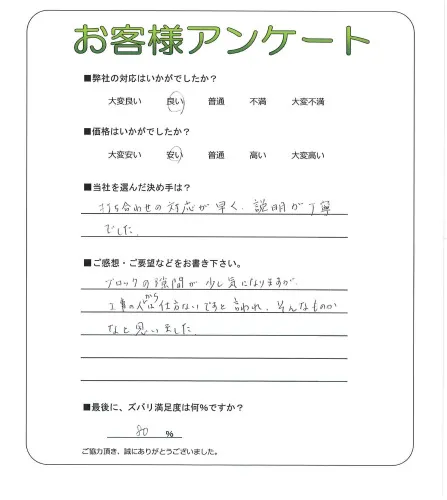 お客様アンケート
■弊社の対応はいかがでしたか?
大変良い 良い 普通 不満 大変不満
■価格はいかがでしたか?
大変安い 安い 普通 高い 大変高い
■当社を選んだ決め手は?
打ち合わせの対応が早く、説明が丁寧
でした。
■ご感想・ご要望などをお書き下さい。
ブロックの隙間が少し気になりますが、
から
工事の 仕方ないですと言われ、そんなものか
なと思いました。
■最後に、ズバリ満足度は何%ですか?
80 %
ご協力頂き、誠にありがとうございました。